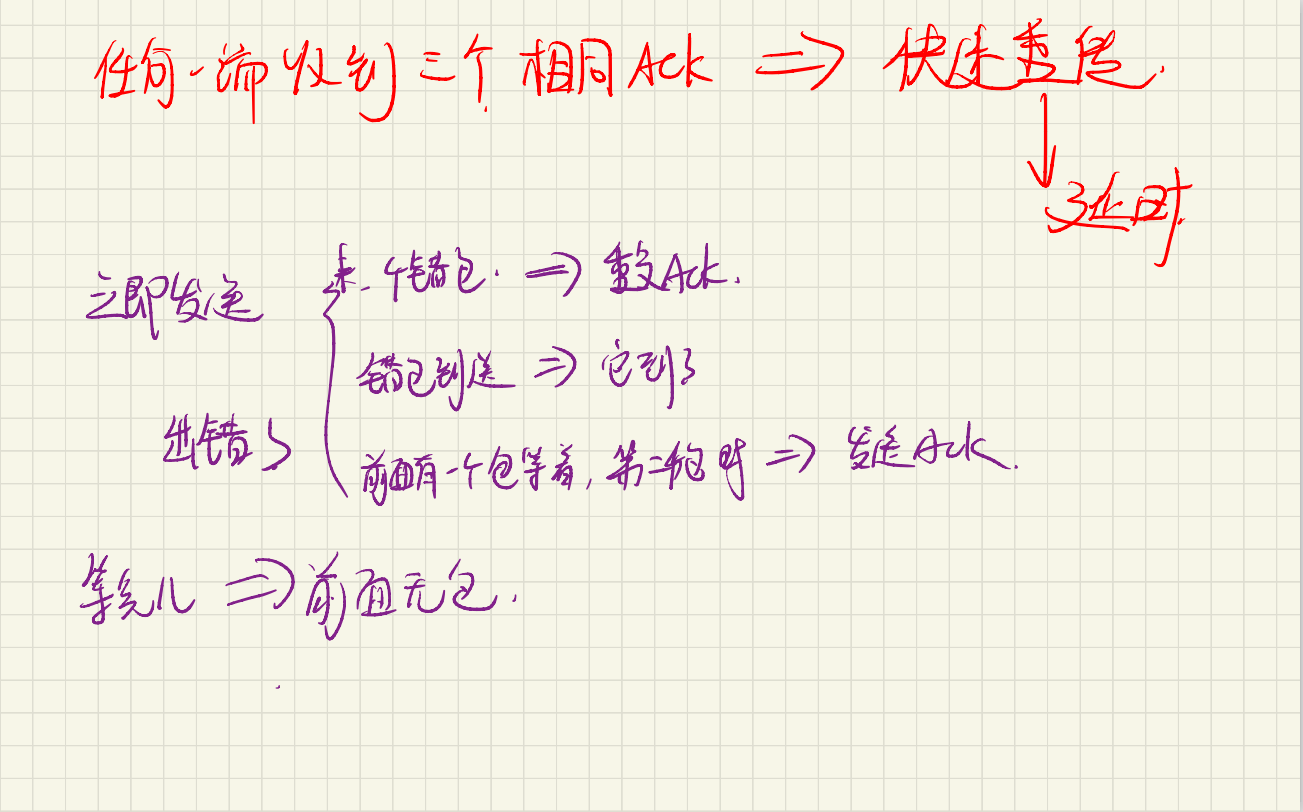 任何一端收到三个相同Ack => 快速重传.
3延时.
立即发送
来一个错包. => 重复Ack.
错包到送 => 它到了
出错了
前面有一个包等着, 第二个包时 => 发送Ack.
等会儿 => 前面无包.